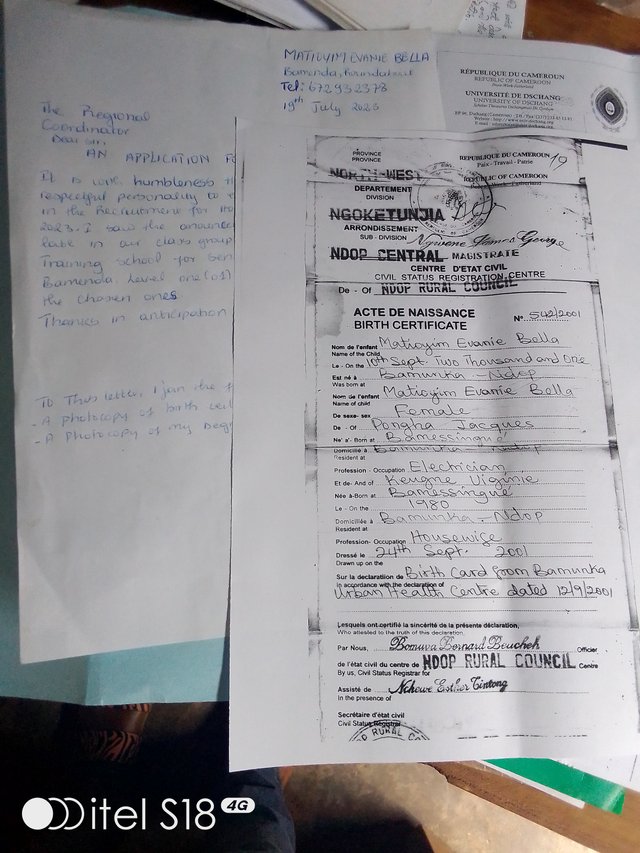 MATIOYIM EVANIE BELLA
Bamenda,
Tel: 672932378
19th July 2023
The Regional
Coordinator
Dear Sir,
AN APPLICATION FO
It is with humbleness th
respectful personality to
in the Recruitment for
2023. I saw the
late in our class group
Training school for Sen
Bamenda. Level one(01)
the chosen ones
Thanks in anticipation
To this letter, I join the
- A photocopy of birth
- A photocopy of my
RÉPUBLIQUE DU CAMEROUN
REPUBLIC OF CAMEROON
UNIVERSITÉ DE DSCHANG
UNIVERSITY OF DSCHANG
PROVINCE
PROVINCE
NORTH-WEST
REPUBLIQUE DU CAMEROUN
Paix - Travail - Patrie
REPUBLIC OF CAMEROON
19
DEPARTEMENT
DIVISION
NGOKETUNJIA
ARRONDISSEMENT
SUB - DIVISION
NDOP CENTRAL MAGISTRATE
CENTRE D'ETAT CIVIL
CIVIL STATUS REGISTRATION CENTRE
De - Of NDOP RURAL COUNCIL
ACTE DE NAISSANCE
BIRTH CERTIFICATE
N° 542/2001
Nom de l'enfant Matioyim Evanie Bella
Name of the Child
Le - On the 10th Sept. Two Thousand and One
Est né à Bamunka - Ndop
Was born at
Nom de l'enfant Matioyim Evanie Bella
Name of child
De sexe- sex Female
De - Of Pongha Jacques
Ne' a'- Born at Bamessingué
Domicilié à Bamunka - Ndop
Resident at
Profession - Occupation Electrician
Et de- And of Kengne Virginie
Née à-Born at Bamessingué
Le - On the 1980
Domiciliée à Bamunka - Ndop
Resident at
Profession- Occupation Housewife
Dressé le 24th Sept. 2001
Drawn up on the
Sur la déclaration de Birth Card from Bamunka
In accordance with the declaration of
Urban Health Centre dated 12/9/2001
Lesquels ont certifié la sincérité de la présente déclaration.
Who attested to the truth of this declaration.
Par Nous, Bomuva Bernard Beucheh Officier
de l'état civil du centre de NDOP RURAL COUNCIL Centre
By us, Civil Status Registrar for
Assisté de Nchewe Esther Tintong
In the presence of
Secrétaire d'état civil
Civil Status Registrar
RURAL CO
itel S18 4G